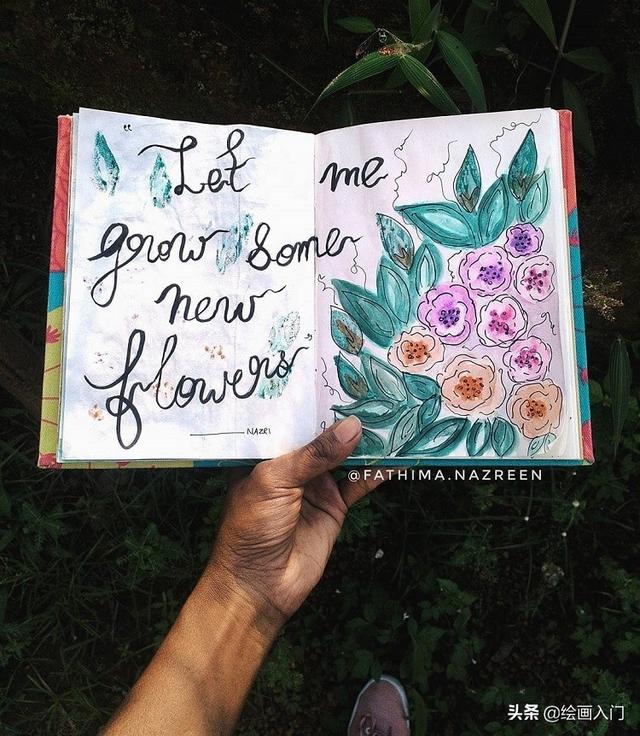 "Let me
grow some
new
flowers"
—NAZRI
@FATHIMA.NAZREEN
头条 @绘画入门